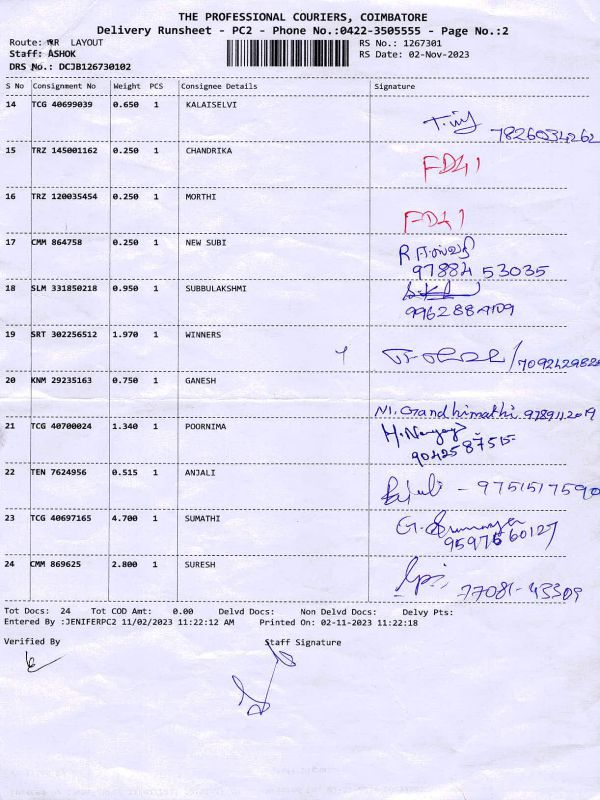 THE PROFESSIONAL COURIERS, COIMBATORE
Delivery Runsheet - PC2 - Phone No.:0422-3505555 - Page No.:2
Route: RR LAYOUT RS No.: 1267301
Staff: ASHOK RS Date: 02-Nov-2023
DRS No.: DCJB126730102
S No Consignment No Weight PCS Consignee Details Signature
14 TCG 40699039 0.650 1 KALAISELVI
7826034262
15 TRZ 145001162 0.250 1 CHANDRIKA
FD41
16 TRZ 120035454 0.250 1 MORTHI
FD41
17 CMM 864758 0.250 1 NEW SUBI
97884 53035
18 SLM 331850218 0.950 1 SUBBULAKSHMI
19 SRT 302256512 1.970 1 WINNERS
20 KNM 29235163 0.750 1 GANESH
M. Gandhimathi. 9789112019
21 TCG 40700024 1.340 1 POORNIMA
9042587515
22 TEN 7624956 0.515 1 ANJALI
Anjali - 9751517590
23 TCG 40697165 4.700 1 SUMATHI
9597660127
24 CMM 869625 2.800 1 SURESH
77081-43309
Tot Docs: 24 Tot COD Amt: 0.00 Delvd Docs: Non Delvd Docs: Delvy Pts:
Entered By :JENIFERPC2 11/02/2023 11:22:12 AM Printed On: 02-11-2023 11:22:18
Verified By Staff Signature